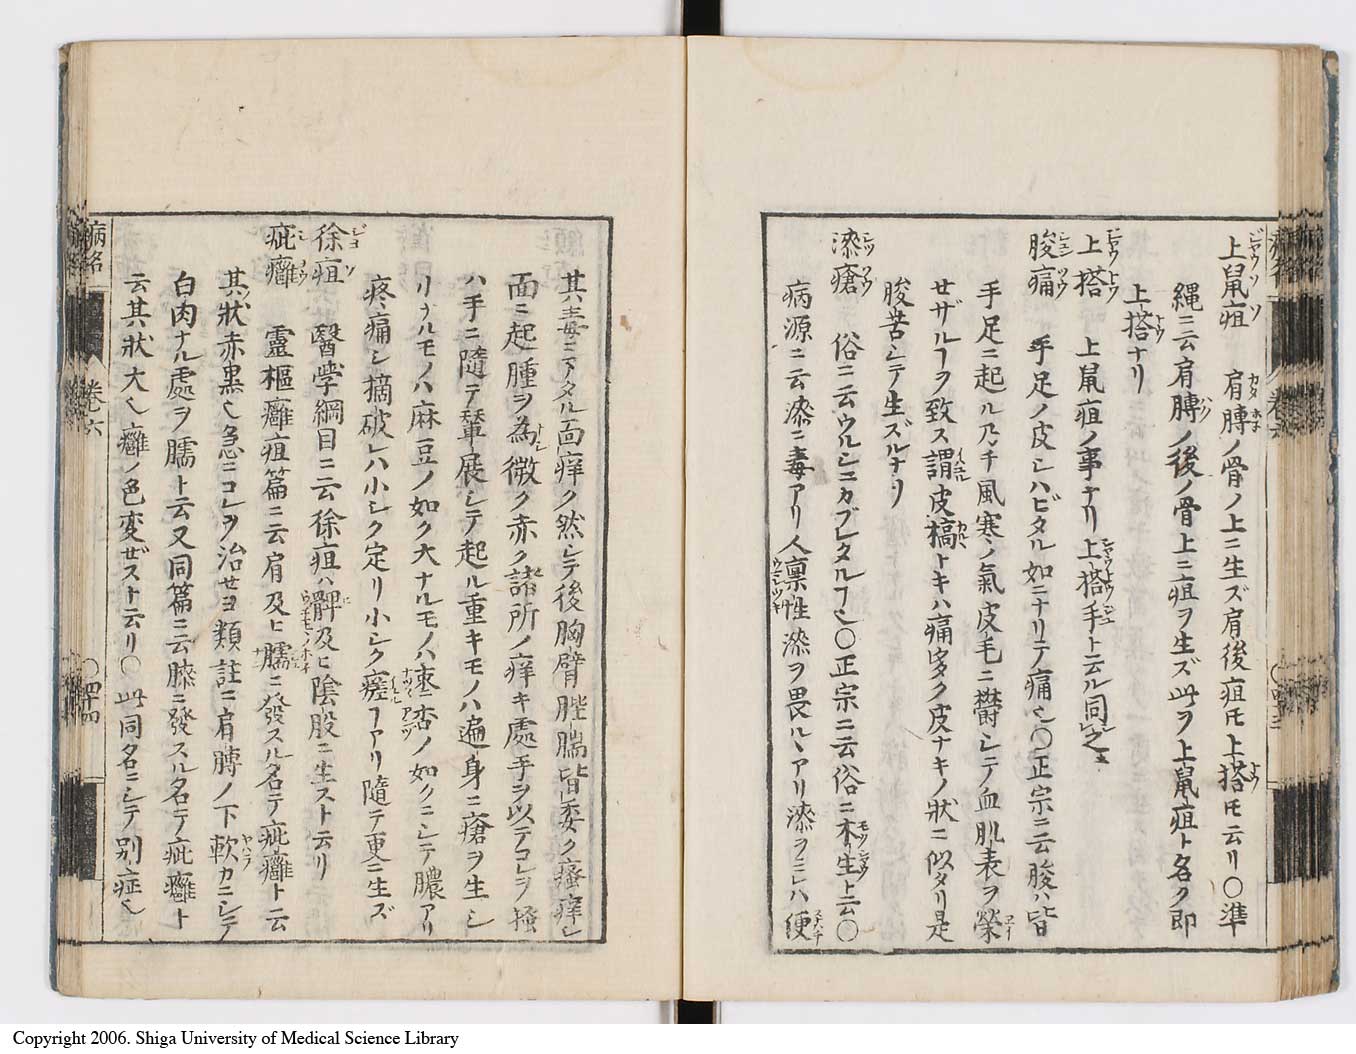 上鼠疽 肩膊ノ骨ノ上ニ生ズ肩後疽ㇳモ上搭ㇳモ云リ〇準
縄ニ云肩膊ノ後ノ骨上ニ疽ヲ生ズ此ヲ上鼠疽ト名ク即
上搭ナリ
上搭 上鼠疽ノ事ナリ上搭手ト云ル同之
朘痛 手足ノ皮シハビタル如ニナリテ痛也〇正宗ニ云朘ハ皆
手足ニ起ル乃チ風寒ノ氣皮毛ニ欝シテ血肌表ヲ榮
セザルヿヲ致ス謂皮槁トキハ痛多ク皮ナキノ状ニ似タリ是
朘苦シテ生ズルナリ
漆瘡 俗ニ云ウルシニカブレタルヿ也〇正宗ニ云俗ニ木生上云〇
病源ニ云漆ニ毒アリ人稟性漆ヲ畏ルヽアリ漆ヲミレハ便
其毒ニ下タル面痒ク然シテ後胸臂䏶腨皆委ク瘙痒シ
面ニ起腫ヲ為微ク赤ク諸所ノ痒キ處手ヲ以テコレヲ搔
ハ手ニ隨テ輦展シテ起ル重キモノハ遍身ニ瘡ヲ生シ
リナルモノハ麻豆ノ如ク大ナルモノハ棗杏ノ如クニシテ膿アリ
疼痛シ摘破レハ小シク定リ小シク瘥ヿアリ隨テ更ニ生ズ
徐疽 醫学綱目ニ云徐疽ハ髀及ヒ陰股ニ生スト云リ
疵癰 靈樞癰疽篇ニ云肩及ヒ臑ニ發スル名テ疵癰ト云
其狀赤黒也急ニコレヲ治セヨ類註ニ肩膊ノ下軟カニシテ
白肉ナル處ヲ臑ト云又同篇ニ云膝ニ發スル名テ疵癰ト
云其狀大也癰ノ色変ぜズト云リ〇此同名ニシテ別症也
病名 卷六 〇四十四